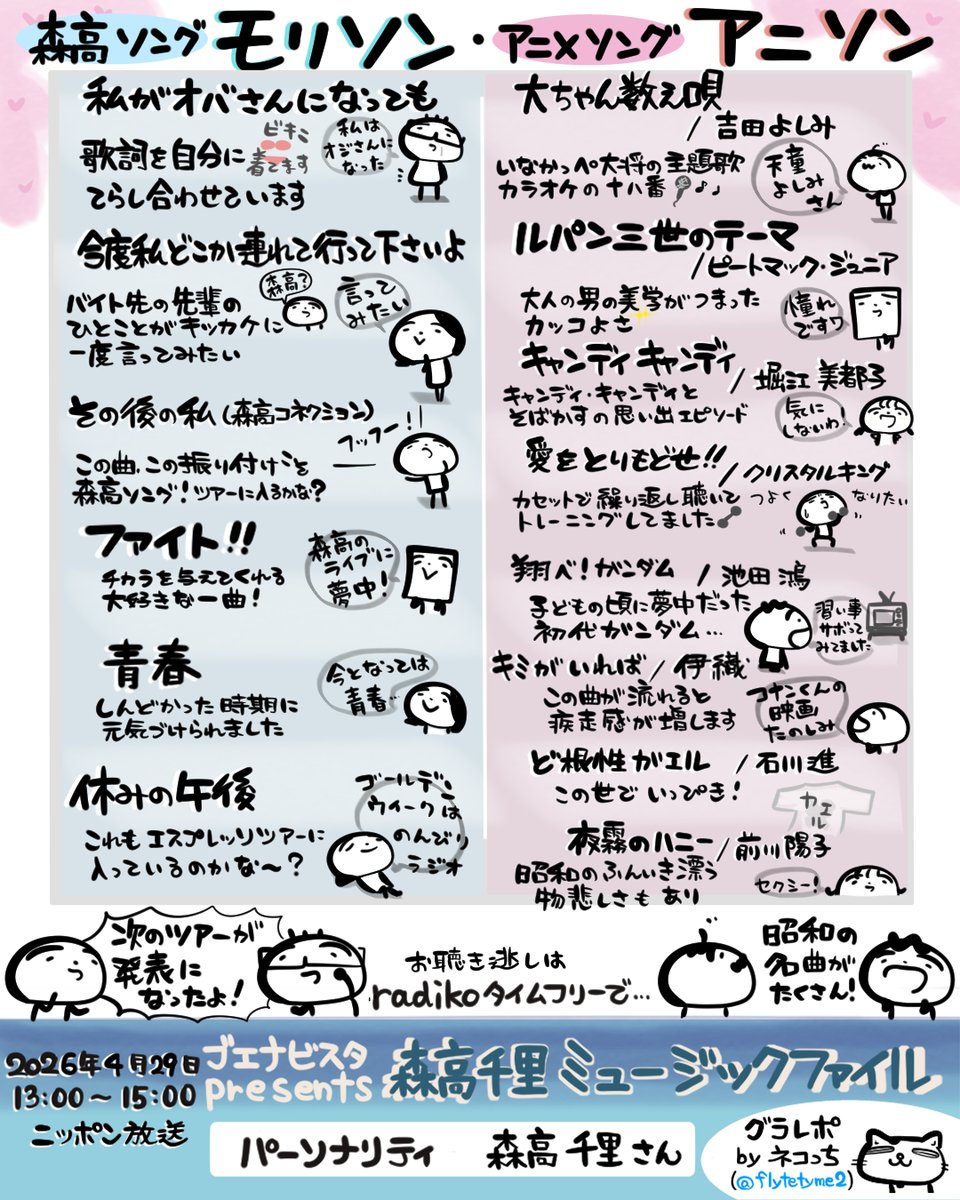 森高ソング モリソン・アニメソング アニソン
私がオバさんになっても
歌詞を自分に
てらし合わせています
ビキニ
着てます
私は
オジさんに
なった
今度私どこか連れて行って下さいよ
バイト先の先輩の
ひとことがキッカケに
一度言ってみたい
森高?
言って
みたい
その後の私(森高コネクション)
この曲、この振り付けこそ
森高ソング!ツアーに入るかな?
フッフー!!
ファイト!!
チカラを与えてくれる
大好きな一曲!
森高の
ライブに
夢中!
青春
しんどかった時期に
元気づけられました
今となっては
青春
休みの午後
これもエスプレッソツアーに
入っているのかな〜?
ゴールデン
ウィークは
のんびり
ラジオ
大ちゃん数え唄
/吉田よしみ
いなかっぺ大将の主題歌
カラオケの十八番
天童
よしみ
さん
ルパン三世のテーマ
/ピートマック・ジュニア
大人の男の美学がつまった
カッコよさ
憧れ
ですワ
キャンディキャンディ
/堀江美都子
キャンディ・キャンディと
そばかすの思い出エピソード
気に
しないわ!
愛をとりもどせ!!
/クリスタルキング
カセットで繰り返し聴いて
トレーニングしてました
つよく なりたい
翔べ!ガンダム /池田鴻
子どもの頃に夢中だった
初代ガンダム…
習い事
サボって
みてました
キミがいれば/伊織
この曲が流れると
疾走感が増します
コナンくんの
映画
たのしみ
ど根性ガエル /石川進
この世でいっぴき!
カエ
ル
夜霧のハニー/前川陽子
昭和のふんいき漂う
物悲しさもあり
セクシー!
次のツアーが
発表に
なったよ!
お聴き逃しは
radikoタイムフリーで…
昭和の
名曲が
たくさん!
2026年4月29日
13:00〜15:00
ニッポン放送
ブエナビスタ
presents
森高千里ミュージックファイル
パーソナリティ 森高千里さん
グラレポ
by ネコっち
(@flytetyme2)